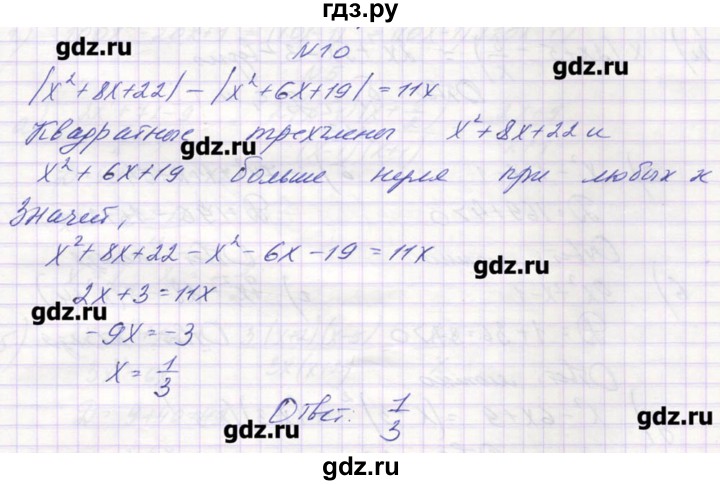 гдз.ру
gdz.ru
N10
gdz.ru
|x²+8x+22| - |x²+6x+19| = 11x
Квадратные трехчлены x²+8x+22 и
gdz.ru
x²+6x+19 больше нуля при любых x
Значит,
x²+8x+22-x²-6x-19=11x
gdz.ru
2x+3=11x
gdz.ru
-9x=-3
x=1/3
Ответ: 1/3
gdz.ru
gdz.ru
gdz.ru